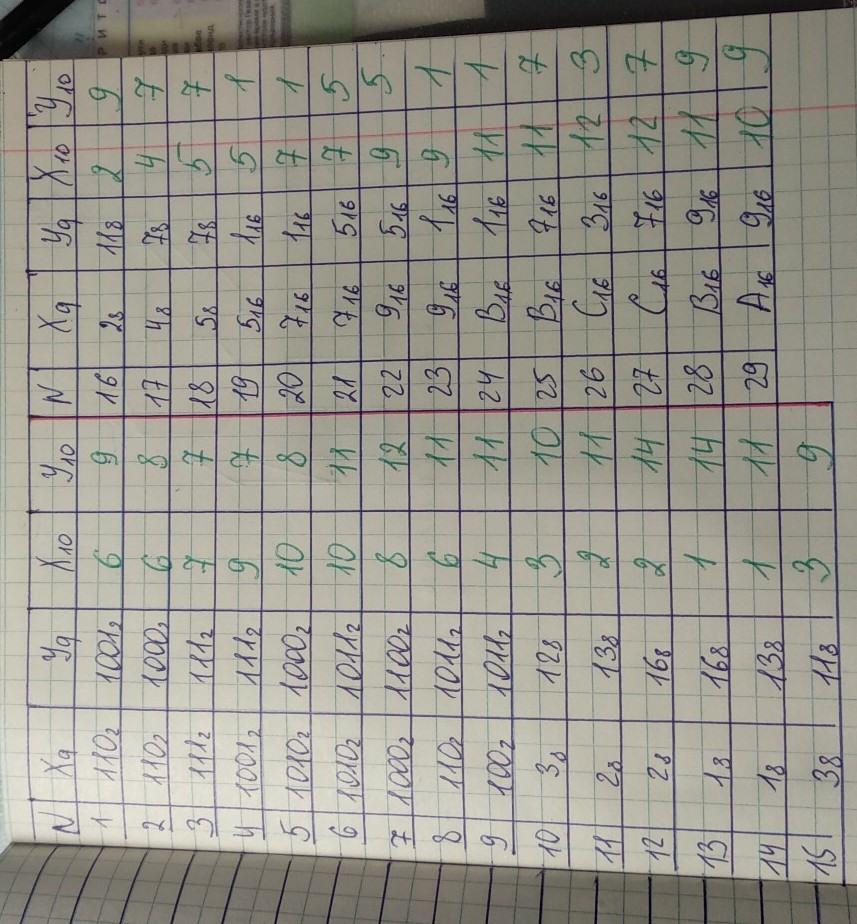 РИТО
N Xq Yq X10 Y10 N Xq Yq X10 Y10
1 110₂ 1001₂ 6 9 16 2₈ 11₈ 2 9
2 110₂ 1000₂ 6 8 17 4₈ 7₈ 4 7
3 111₂ 111₂ 7 7 18 5₈ 7₈ 5 7
4 1001₂ 111₂ 9 7 19 5₁₆ 1₁₆ 5 1
5 1010₂ 1000₂ 10 8 20 7₁₆ 1₁₆ 7 1
6 1010₂ 1011₂ 10 11 21 7₁₆ 5₁₆ 7 5
7 1000₂ 1100₂ 8 12 22 9₁₆ 5₁₆ 9 5
8 110₂ 1011₂ 6 11 23 9₁₆ 1₁₆ 9 1
9 100₂ 1011₂ 4 11 24 B₁₆ 1₁₆ 11 1
10 3₈ 12₈ 3 10 25 B₁₆ 7₁₆ 11 7
11 2₈ 13₈ 2 11 26 C₁₆ 3₁₆ 12 3
12 2₈ 16₈ 2 14 27 C₁₆ 7₁₆ 12 7
13 1₈ 16₈ 1 14 28 B₁₆ 9₁₆ 11 9
14 1₈ 13₈ 1 11 29 A₁₆ 9₁₆ 10 9
15 3₈ 11₈ 3 9